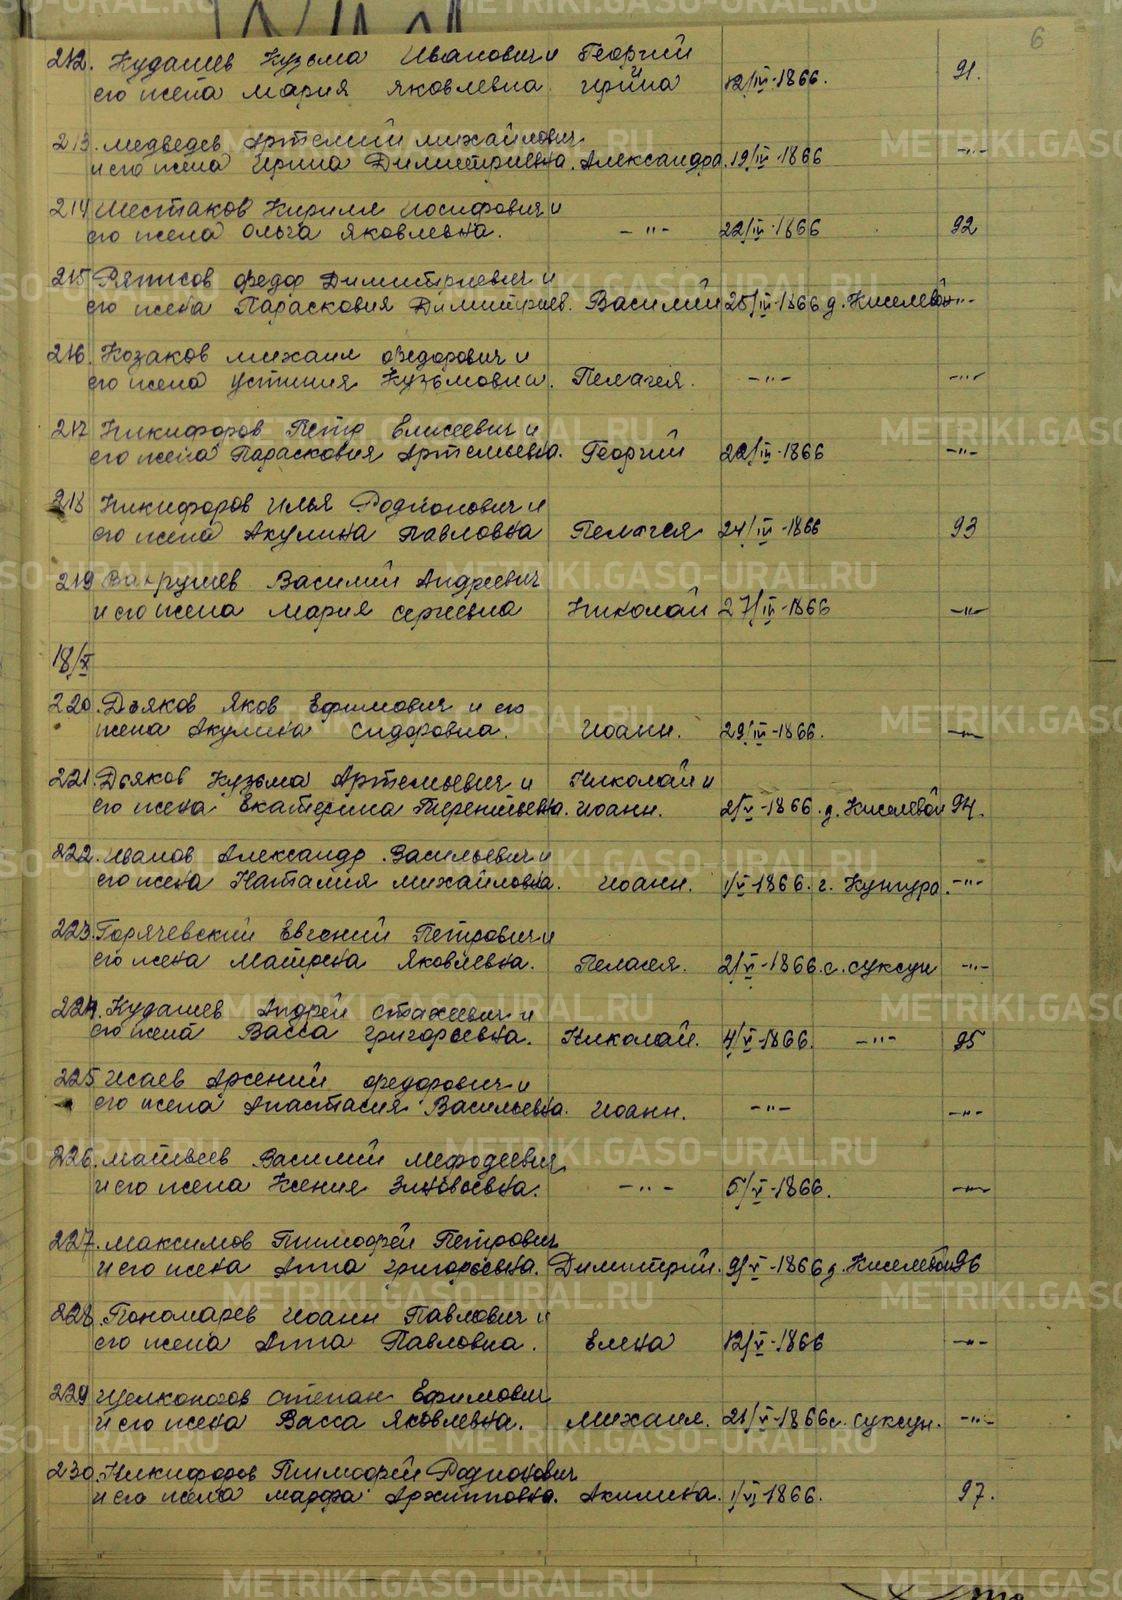 6
212. Кудашев Кузьма Иванович и Георгий
его жена Мария Яковлевна. Ирина 12/IV-1866. 91.
213. Медведев Артемий Михайлович
и его жена Ирина Димитриевна. Александра. 19/IV-1866 -"-
214 Шестаков Кирилл Иосифович и
его жена Ольга Яковлевна. -"- 22/IV-1866 92
215 Федор Димитриевич и
его жена Параскевия Димитриев. Василий 25/IV-1866 д. Киселевой -"-
216. Козаков Михаил Федорович и
его жена Устиния Кузьмовна. Пелагея. -"- -"-
217 Никифоров Петр Елисеевич и
его жена Параскевия Артемьевна. Георгий 22/IV-1866 -"-
218 Никифоров Илья Родионович и
его жена Акулина Павловна Пелагея 24/IV-1866 93
219 Вахрушев Василий Андреевич
и его жена Мария Сергеевна Николай 27/IV-1866 -"-
18/X
220. Дьяков Яков Ефимович и его
жена Акулина Сидоровна. Иоанн. 29/IV-1866. -"-
221. Дьяков Кузьма Артемьевич и Николай и
его жена Екатерина Терентьевна. Иоанн. 2/V-1866. д. Киселевой 94.
222. Иванов Александр Васильевич и
его жена Наталия Михайловна. Иоанн. 1/V-1866. г. Кунгура. -"-
223. Горячевский Евгений Петрович и
его жена Матрена Яковлевна. Пелагея. 2/V-1866. с. Суксун -"-
224. Кудашев Андрей Стахеевич и
его жена Васса Григорьевна. Николай. 4/V-1866. -"- 95
225 Исаев Арсений Федорович и
его жена Анастасия Васильевна. Иоанн. -"- -"-
226. Матвеев Василий Мефодеевич
и его жена Ксения Зиновьевна. -"- 5/V-1866. -"-
227. Максимов Тимофей Петрович
и его жена Анна Григорьевна. Димитрий. 9/V-1866 д. Киселевой 96
228. Пономарев Иоанн Павлович и
его жена Анна Павловна. Елена 12/V-1866 -"-
229 Щелконогов Степан Ефимович
и его жена Васса Яковлевна. Михаил. 21/V-1866 с. Суксун. -"-
230. Никифоров Тимофей Родионович
и его жена Марфа Архиповна. Акилина. 1/VI 1866. 97.
METRIKI.GASO-URAL.RU